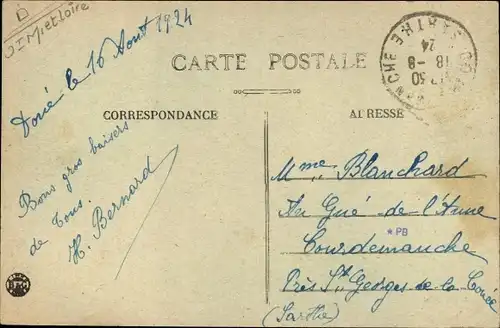 D
INDRE et Loire
Torcé le 16 Août 1924
CARTE POSTALE
SARTHE
18 - 8
24
CORRESPONDANCE
ADRESSE
Bons gros baisers
de Tous.
H. Bernard
Mme Blanchard
Au Gué-de-l'Aune
*PB
Courdemanche
Près St Georges-de-la-Couée
(Sarthe)